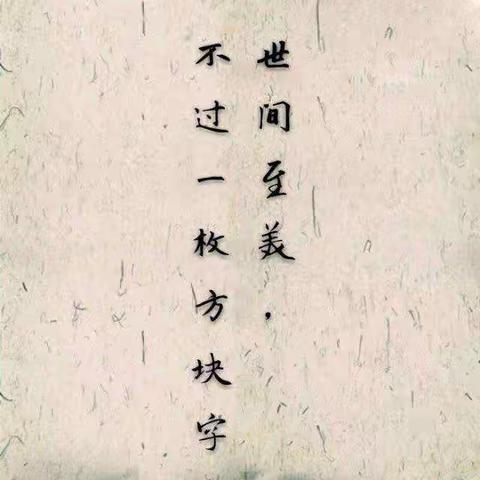 世间至美，
不过一枚方块字